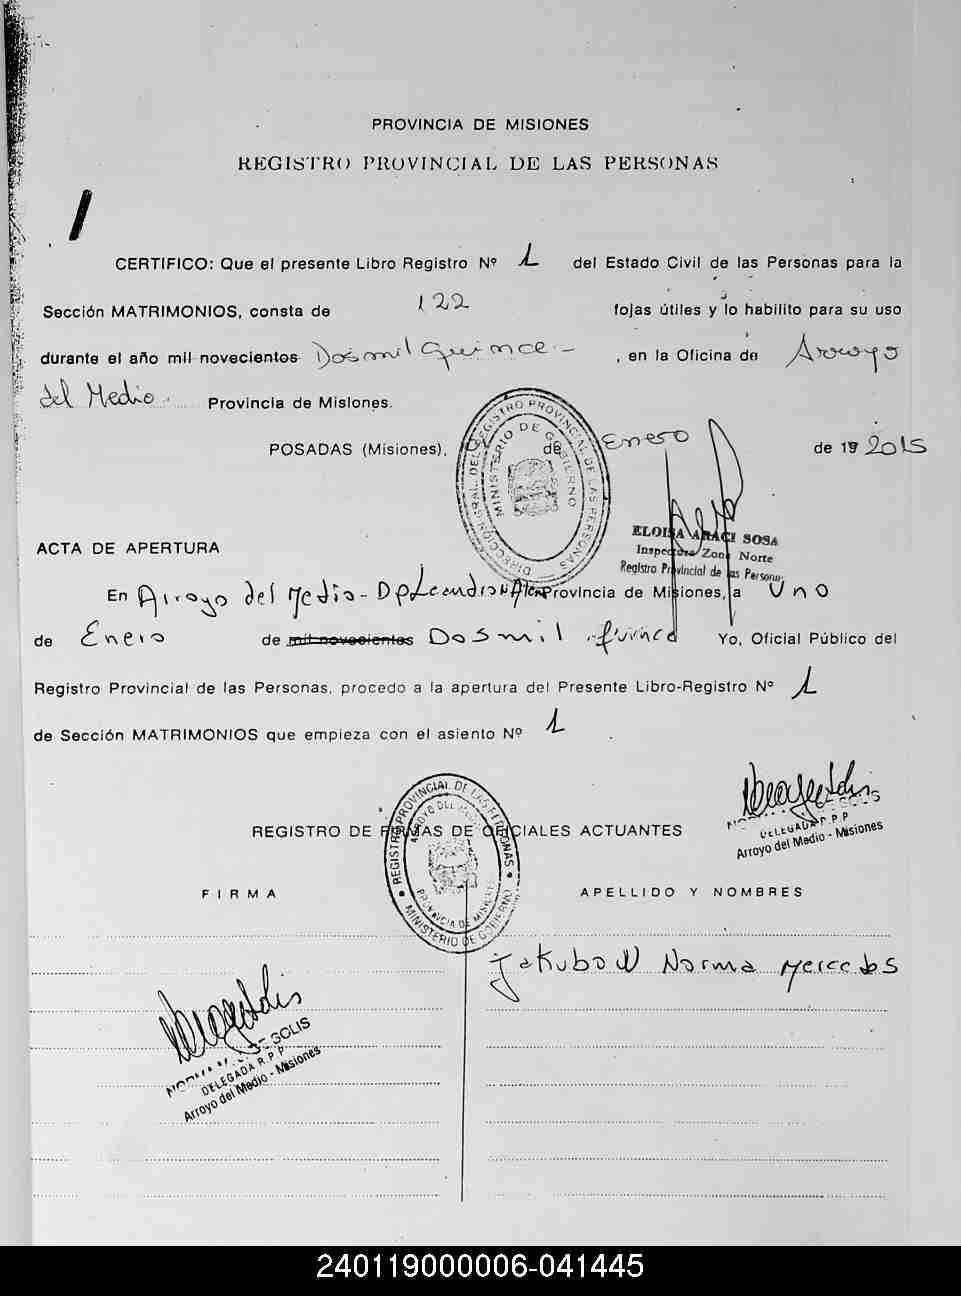 PROVINCIA DE MISIONES
REGISTRO PROVINCIAL DE LAS PERSONAS
CERTIFICO: Que el presente Libro Registro Nº 1 del Estado Civil de las Personas para la
Sección MATRIMONIOS, consta de 122 fojas útiles y lo habilito para su uso
durante el año mil novecientos Dos mil Quince - , en la Oficina de Arroyo
del Medio. Provincia de Misiones.
POSADAS (Misiones), de Enero de 19 2015
DIRECCION GRAL. DEL REGISTRO PROVINCIAL DE LAS PERSONAS
MINISTERIO DE GOBIERNO
ELOISA ARACI SOSA
Inspectora Zona Norte
Registro Provincial de las Personas
ACTA DE APERTURA
En Arroyo del Medio - Dp Leandro N Alem Provincia de Misiones, a Uno
de Enero de mil novecientos Dos mil quince Yo, Oficial Público del
Registro Provincial de las Personas, procedo a la apertura del Presente Libro-Registro Nº 1
de Sección MATRIMONIOS que empieza con el asiento Nº 1.
SOLIS
DELEGADA R.P.P
Arroyo del Medio - Misiones
REGISTRO DE FIRMAS DE OFICIALES ACTUANTES
REGISTRO PROVINCIAL DE LAS PERSONAS
ARROYO DEL MEDIO
PROVINCIA DE MISIONES
MINISTERIO DE GOBIERNO
FIRMA APELLIDO Y NOMBRES
Jakubow Norma Mercedes
NORMA M. DE SOLIS
DELEGADA R.P.P
Arroyo del Medio - Misiones
240119000006-041445